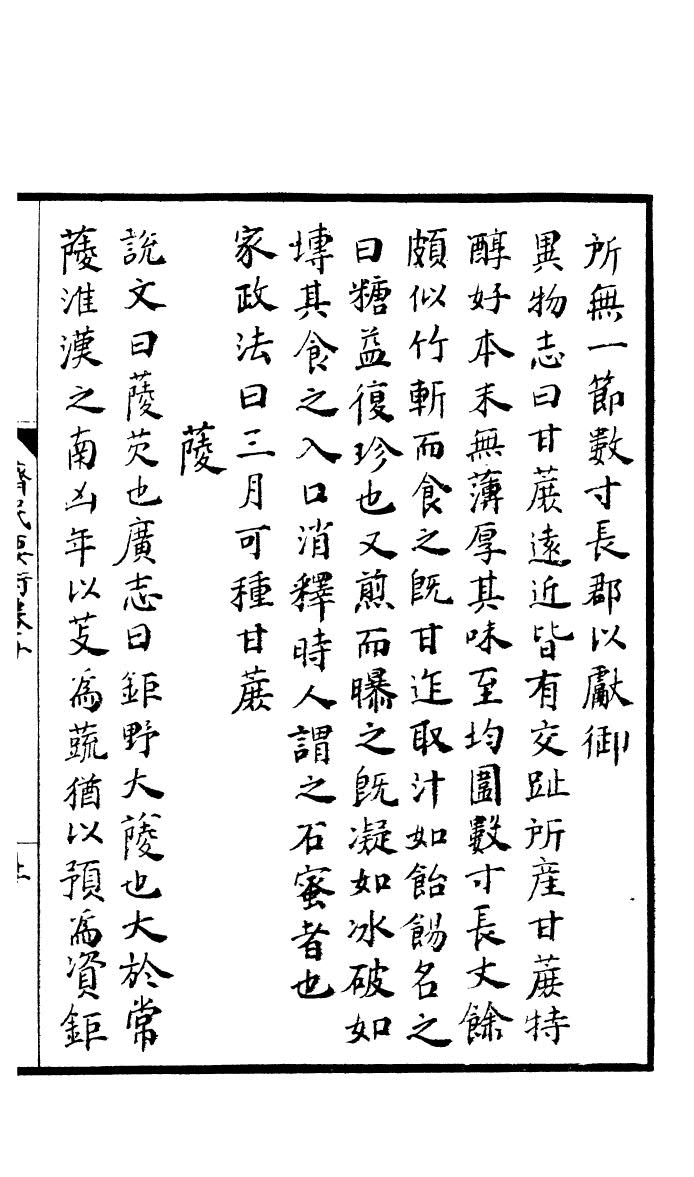 所無一節數寸長郡以獻御
異物志曰甘蔗遠近皆有交趾所産甘蔗特
醇好本末無薄厚其味至均圍數寸長丈餘
頗似竹斬而食之既甘迮取汁如飴餳名之
曰糖益復珍也又煎而曝之既凝如冰破如
塼其食之入口消釋時人謂之石蜜者也
家政法曰三月可種甘蔗
䔖
說文曰䔖芡也廣志曰鉅野大䔖也大於常
䔖淮漢之南凶年以芰爲蔬猶以預爲資鉅
齊民要術卷十